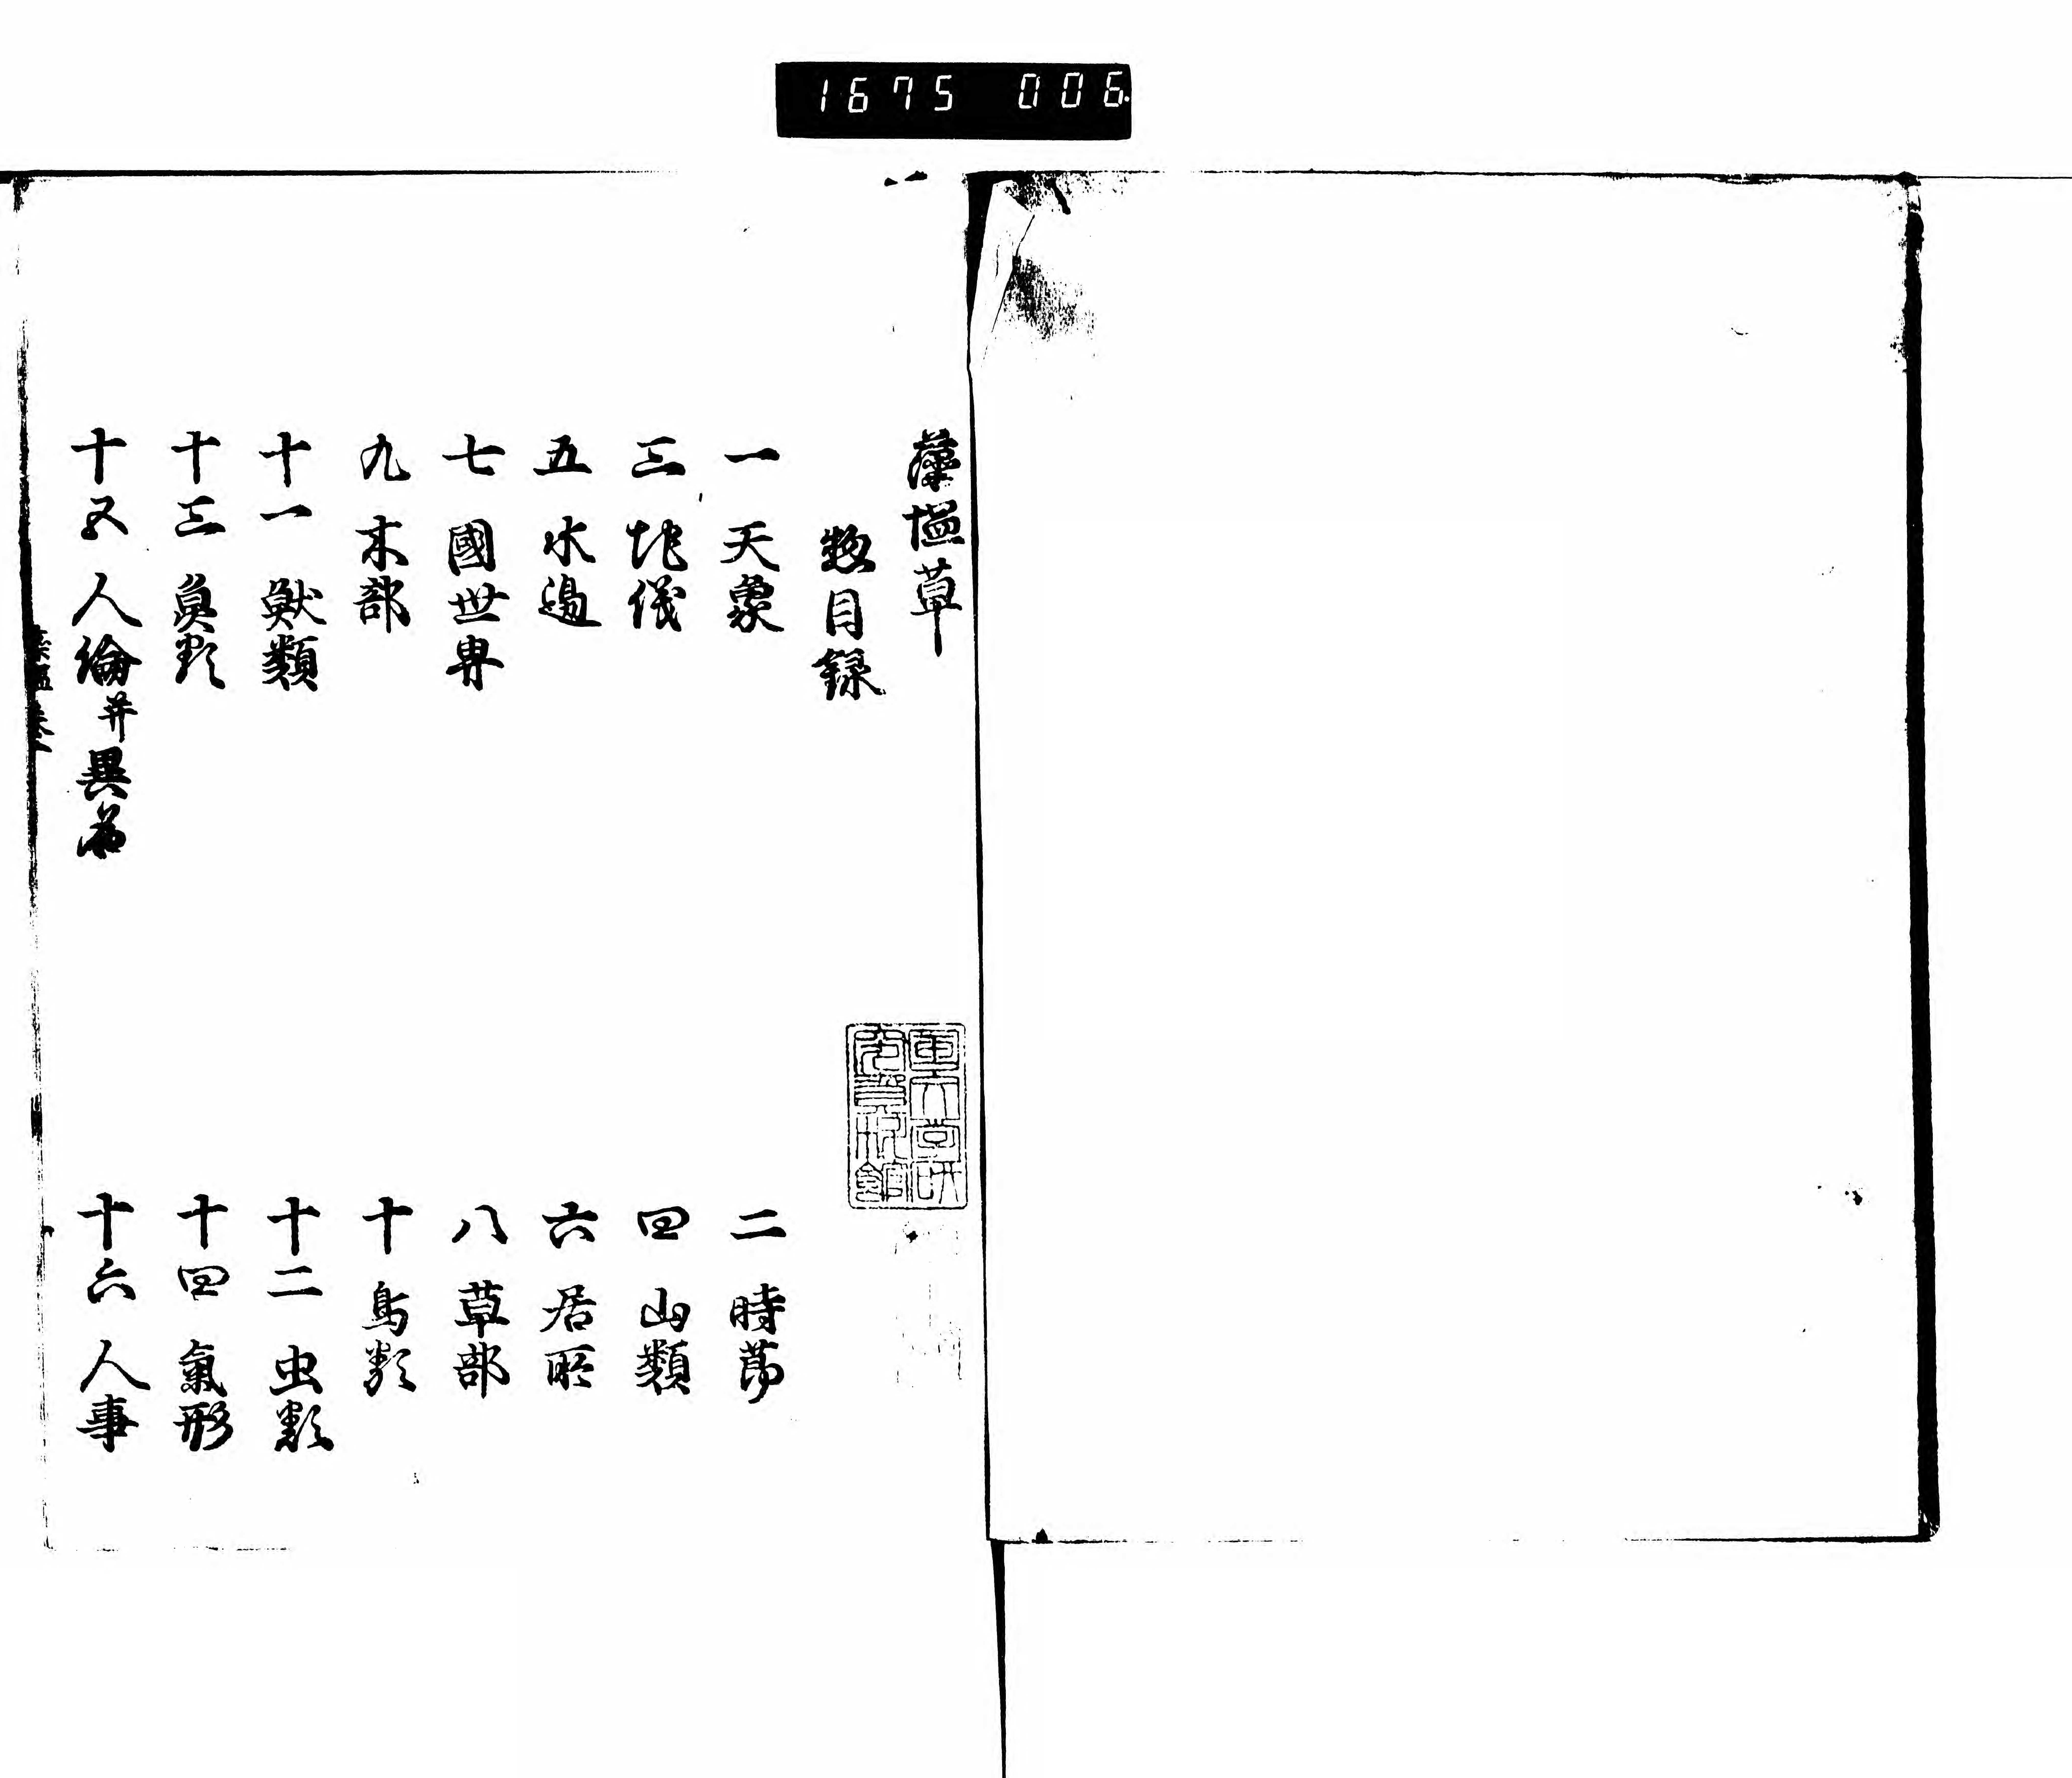 1675 006
藻塩草
惣目録
一 天象
二 時節
三 地儀
四 山類
五 水邊
六 居所
七 國世界
八 草部
九 木部
十 鳥類
十一 獣類
十二 虫類
十三 魚類
十四 氣形
十五 人倫并異名
十六 人事